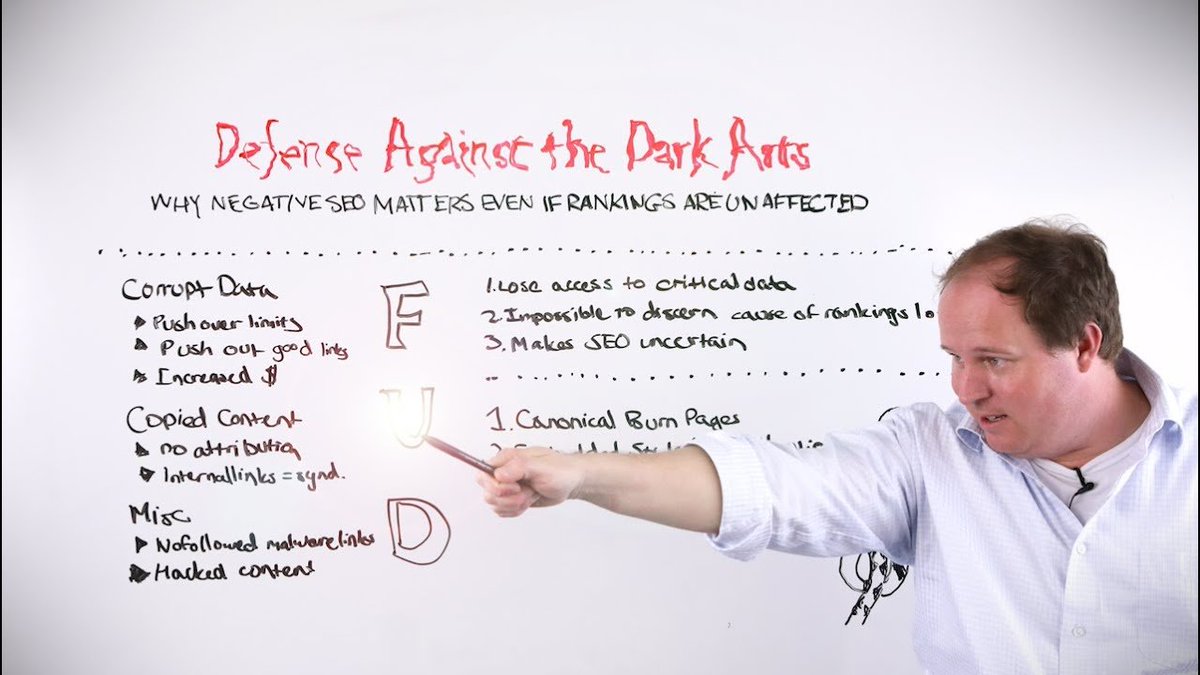 Defense Against the Dark Arts
WHY NEGATIVE SEO MATTERS EVEN IF RANKINGS ARE UNAFFECTED
Corrupt Data
Push over limits
Push out good links
Increased $
Copied Content
no attribution
Internal links = synd.
Misc
Nofollowed malware links
Hacked content
F
U
D
1. Lose access to critical data
2. Impossible to discern cause of rankings lo
3. Makes SEO uncertain
1. Canonical Burn Pages
2.